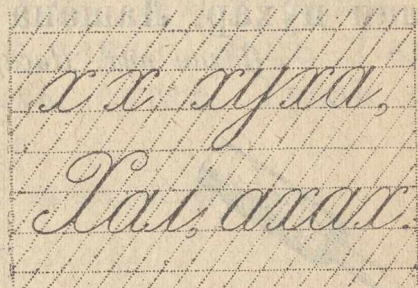 х х, хуха,
Хал, ахах.